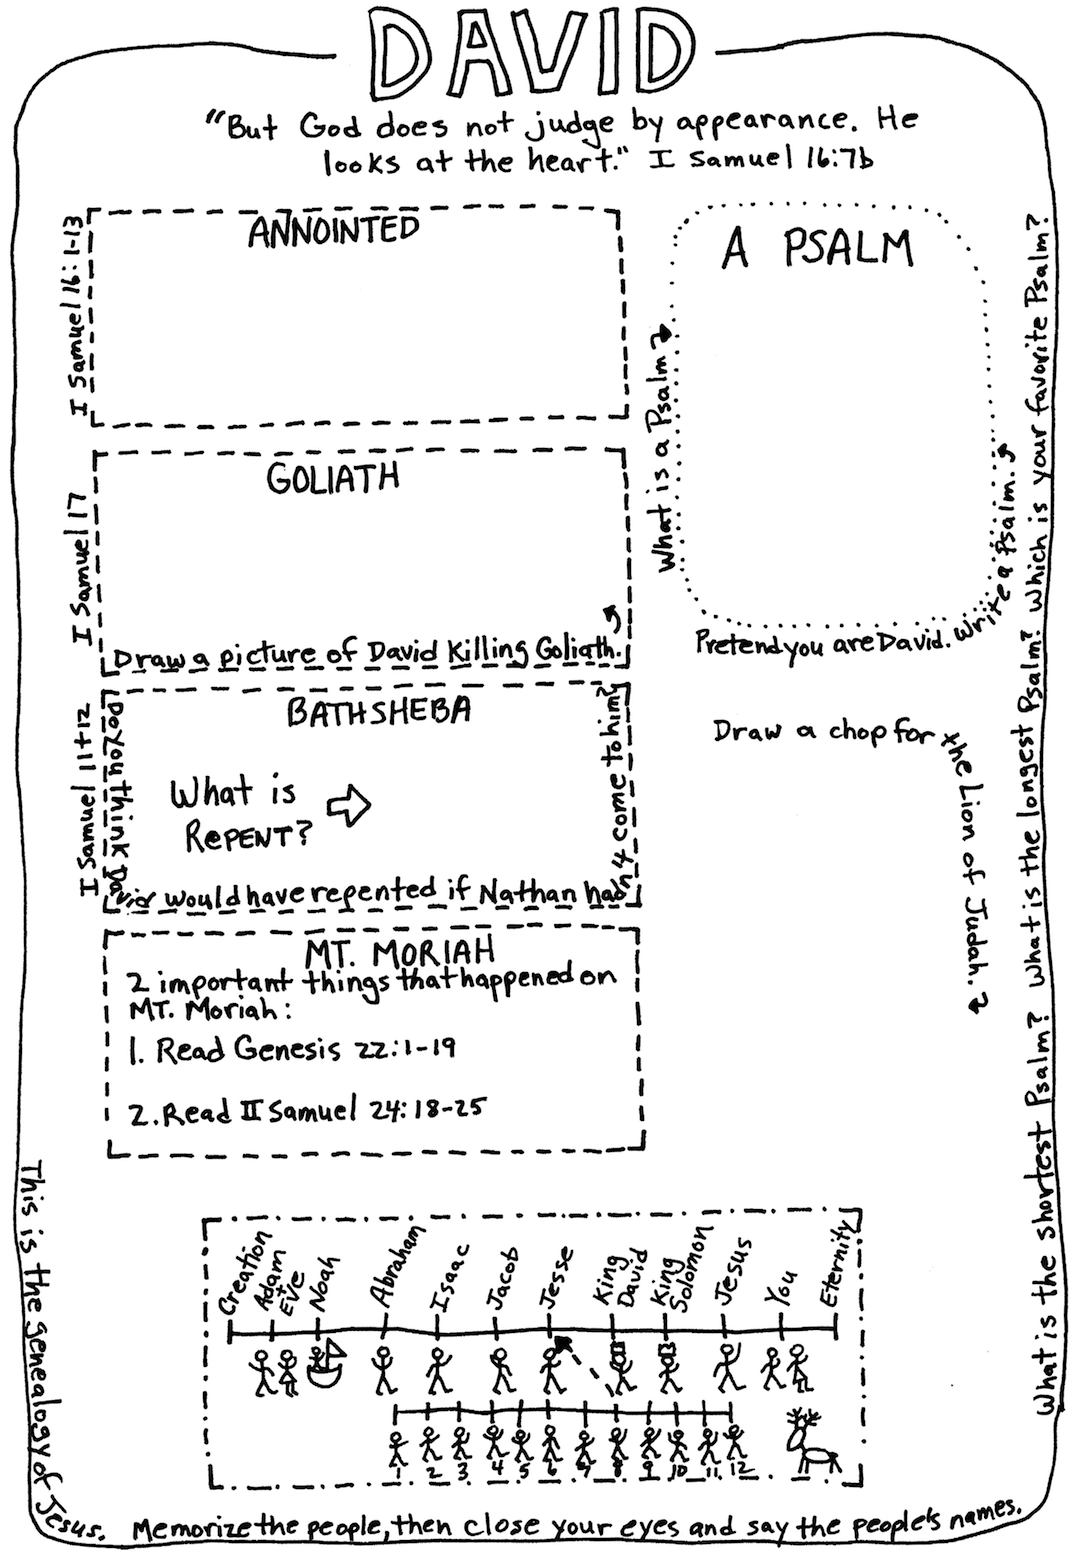 DAVID
"But God does not judge by appearance. He
looks at the heart." I Samuel 16:7b
I Samuel 16:1-13
ANNOINTED
I Samuel 17
GOLIATH
Draw a picture of David Killing Goliath.
I Samuel 11+12
BATHSHEBA
What is
REPENT?
Do you think David would have repented if Nathan hadn't come to him?
MT. MORIAH
2 important things that happened on
MT. Moriah:
1. Read Genesis 22:1-19
2. Read II Samuel 24:18-25
A PSALM
What is a Psalm
Pretend you are David. Write a Psalm.
Draw a chop for the Lion of Judah.
What is the shortest Psalm? What is the longest Psalm? Which is your favorite Psalm?
Creation
Adam
+
EVE
Noah
Abraham
Isaac
Jacob
Jesse
King
David
King
Solomon
Jesus
You
Eternity
1 2 3 4 5 6 7 8 9 10 11 12
This is the genealogy of Jesus.
Memorize the people, then close your eyes and say the people's names.